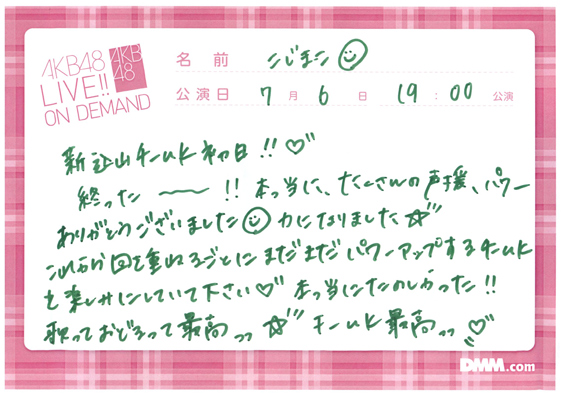 AKB48
LIVE!!
ON DEMAND
AKB
48
名 前 こじまこ
公演日 7 月 6 日 19 : 00 公演
新公演チームK初日!!♡
終った〜〜!! 本当に、たくさんの声援、パワー
ありがとうございました 力になりました☆
これから回を重ねるごとにまだまだパワーアップするチームK
を楽しみにしていて下さい♡ 本当にたのしかった!!
歌っておどるって最高っっ☆ チームK最高っっ♡
DMM.com